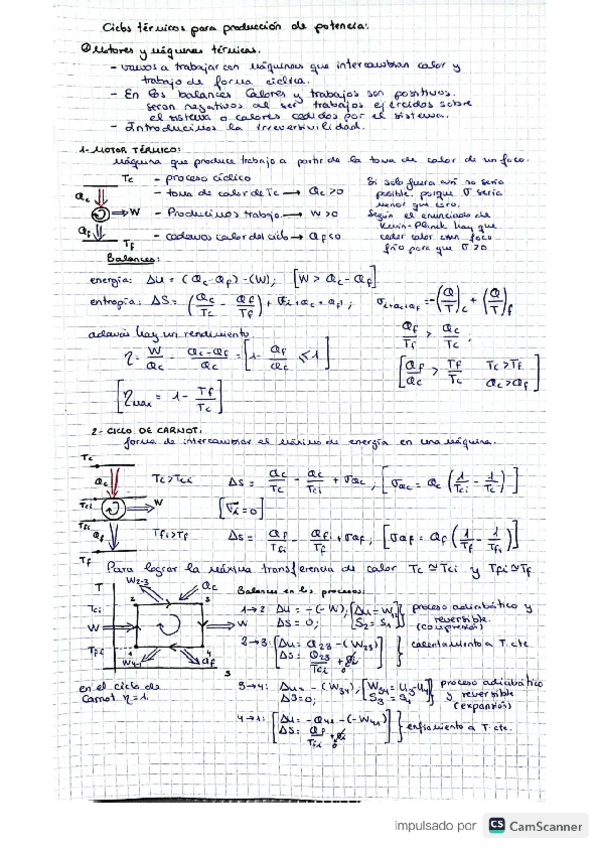 Ciclos térmicos para producción de potencia:
① Motores y máquinas térmicas.
- vamos a trabajar con máquinas que intercambian calor y
trabajo de forma cíclica.
- En los balances calores y trabajos son positivos.
seran negativos al ser trabajos ejercidos sobre
el sistema o calores cedidos por el sistema.
- Introducimos la irreversivilidad.
1- MOTOR TÉRMICO:
Máquina que produce trabajo a partir de la toma de calor de un foco.
Tc - proceso cíclico
Qc - toma de calor de Tc → Qc>0
⇒W - Producimos trabajo → W>0
Qf - cedamos calor del ciclo → Qf<0
Tf
Si solo fuera así no sería
posible, porque σ sería
menor que cero.
Según el enunciado de
Kelvin-Planck hay que
ceder calor a un foco
frío para que σ>0
Balances:
energía: Δu = (Qc-Qf) - (W); [W > Qc - Qf]
entropía: ΔS = (Qc/Tc - Qf/Tf) + σi+ac+af; σi+ac+af = -(Q/T)c + (Q/T)f
Qf/Tf > Qc/Tc
además hay un rendimiento.
η = W/Qc = Qc-Qf/Qc = [1 - Qf/Qc ≤ 1]
[Qf/Qc > Tf/Tc Tc>Tf Qc>Qf]
[ηmax = 1 - Tf/Tc]
2- CICLO DE CARNOT:
forma de intercambiar el máximo de energía en una máquina.
Tc
Qc Tc>Tci ΔS = Qc/Tc - Qc/Tci + σac; [σac = Qc (1/Tci - 1/Tc)]
Tci W [σi=0]
Tfi
Qf Tfi>Tf ΔS = Qf/Tfi - Qf/Tf + σaf; [σaf = Qf (1/Tf - 1/Tfi)]
Tf
Para lograr la máxima transferencia de calor Tc ≅ Tci y Tfi ≅ Tf.
T W2-3 Qc
Tci 2 3
W W
Tfi 1 4
W4-1 Qf S
en el ciclo de
Carnot η=1.
Balances en los procesos:
1→2: Δu = -(-W), [Δu=W] ΔS = 0; [S2 = S1] } proceso adiabático y
reversible.
(compresión)
2→3: [Δu = Q23 - (W23) ΔS = Q23/Tci + σi 0] } calentamiento a T. cte
3→4: Δu = -(W34), [W34 = U3-U4] ΔS=0; [S3 = S4] } proceso adiabático
y reversible
(expansión)
4→1: [Δu = -Q41 - (-W41) ΔS = Qf/Tfi + σi 0] } enfriamiento a T. cte.
impulsado por CS CamScanner